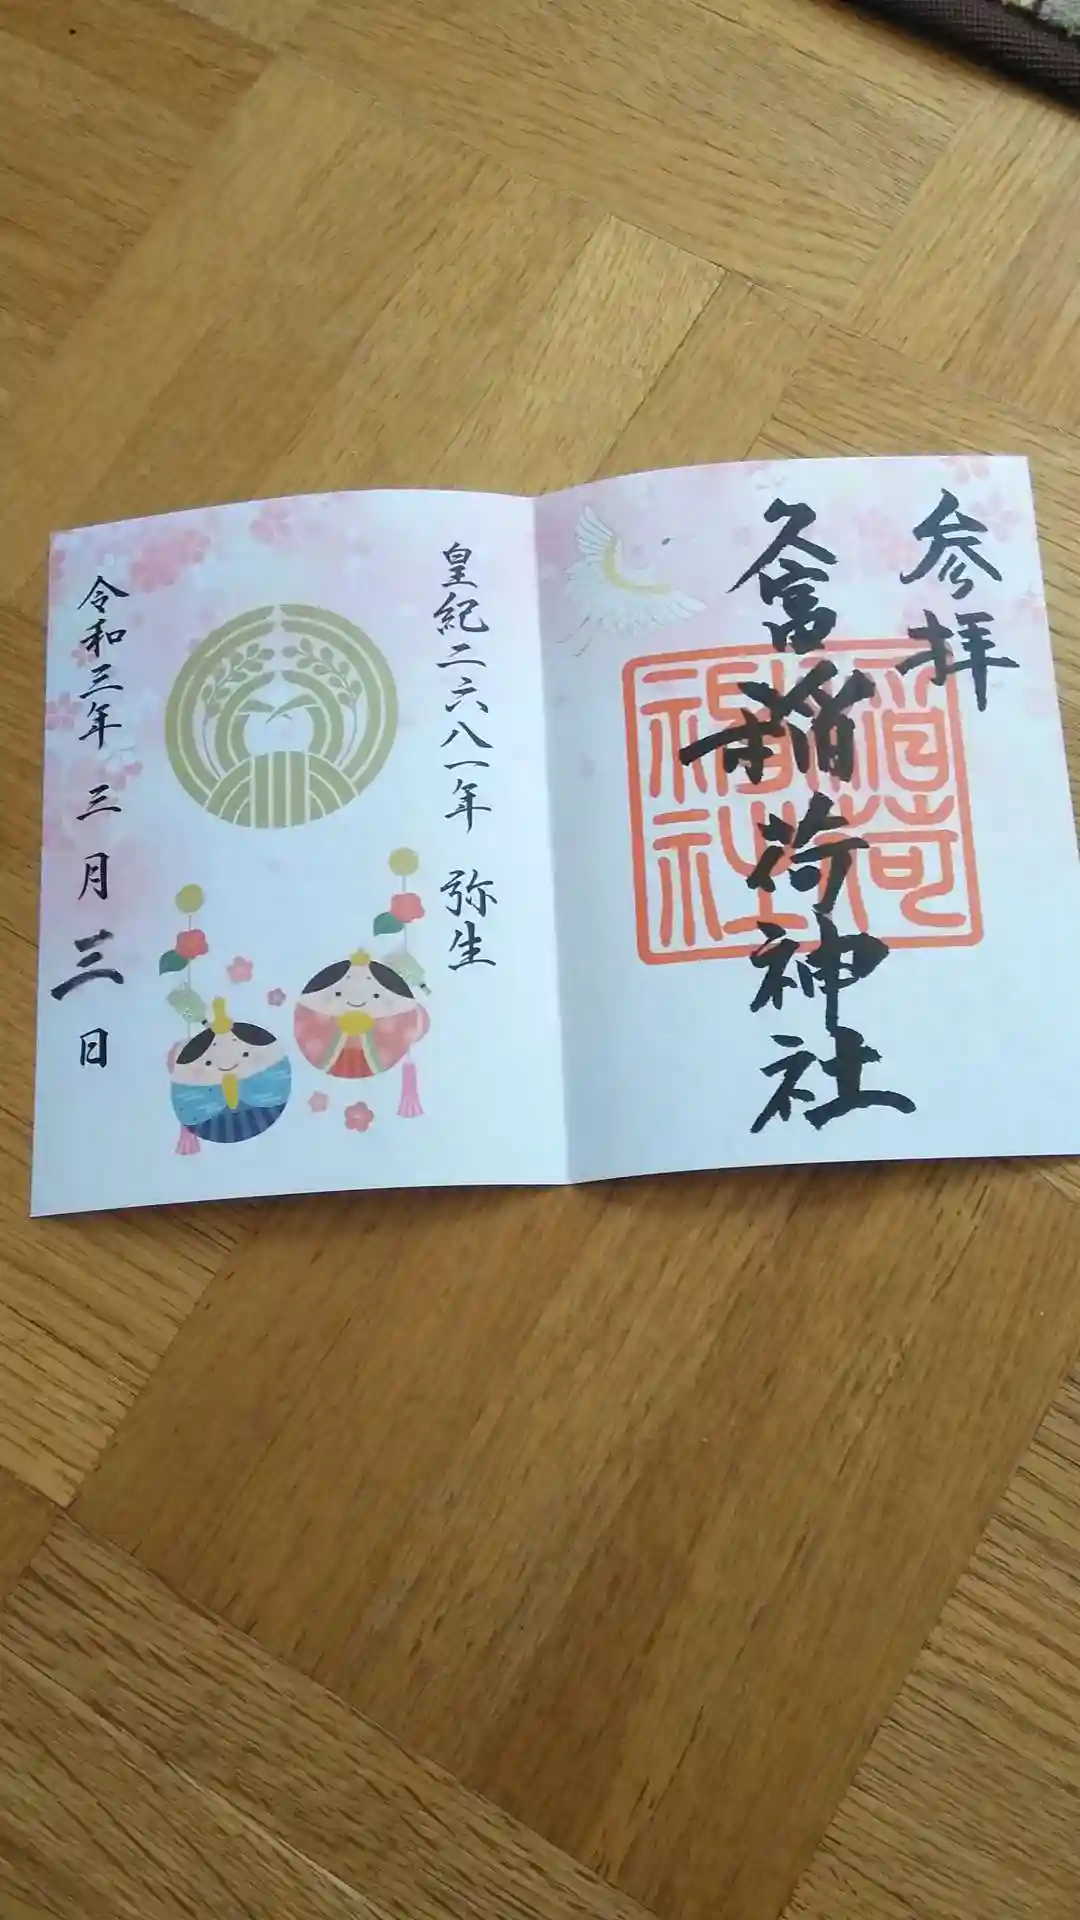 参拝
久富稲荷神社
稲荷
神社
皇紀二六八一年 弥生
令和三年 三月 三日